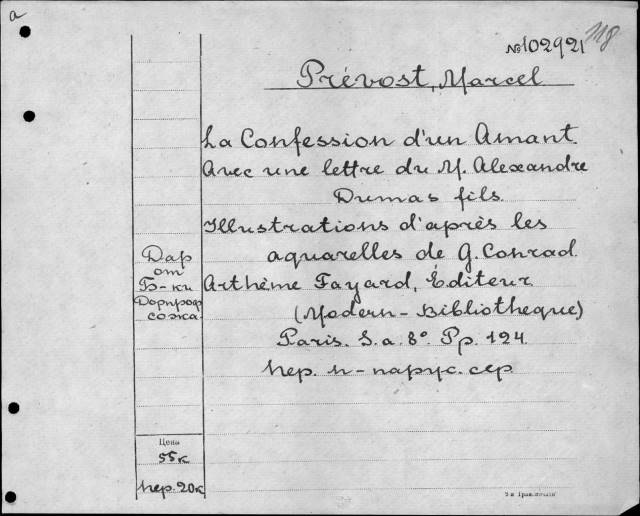 a
118
№102921
Prévost, Marcel
La Confession d'un Amant.
Avec une lettre du M. Alexandre
Dumas fils.
Illustrations d'après les
aquarelles de G. Conrad.
Arthème Fayard, Éditeur
(Modern-Bibliotheque)
Paris. S. a. 8° Pp. 124.
пер. п-парус. сер.
Дар
от
Б-ки
Дорпроф
сожа.
Цена
55к
пер. 20к